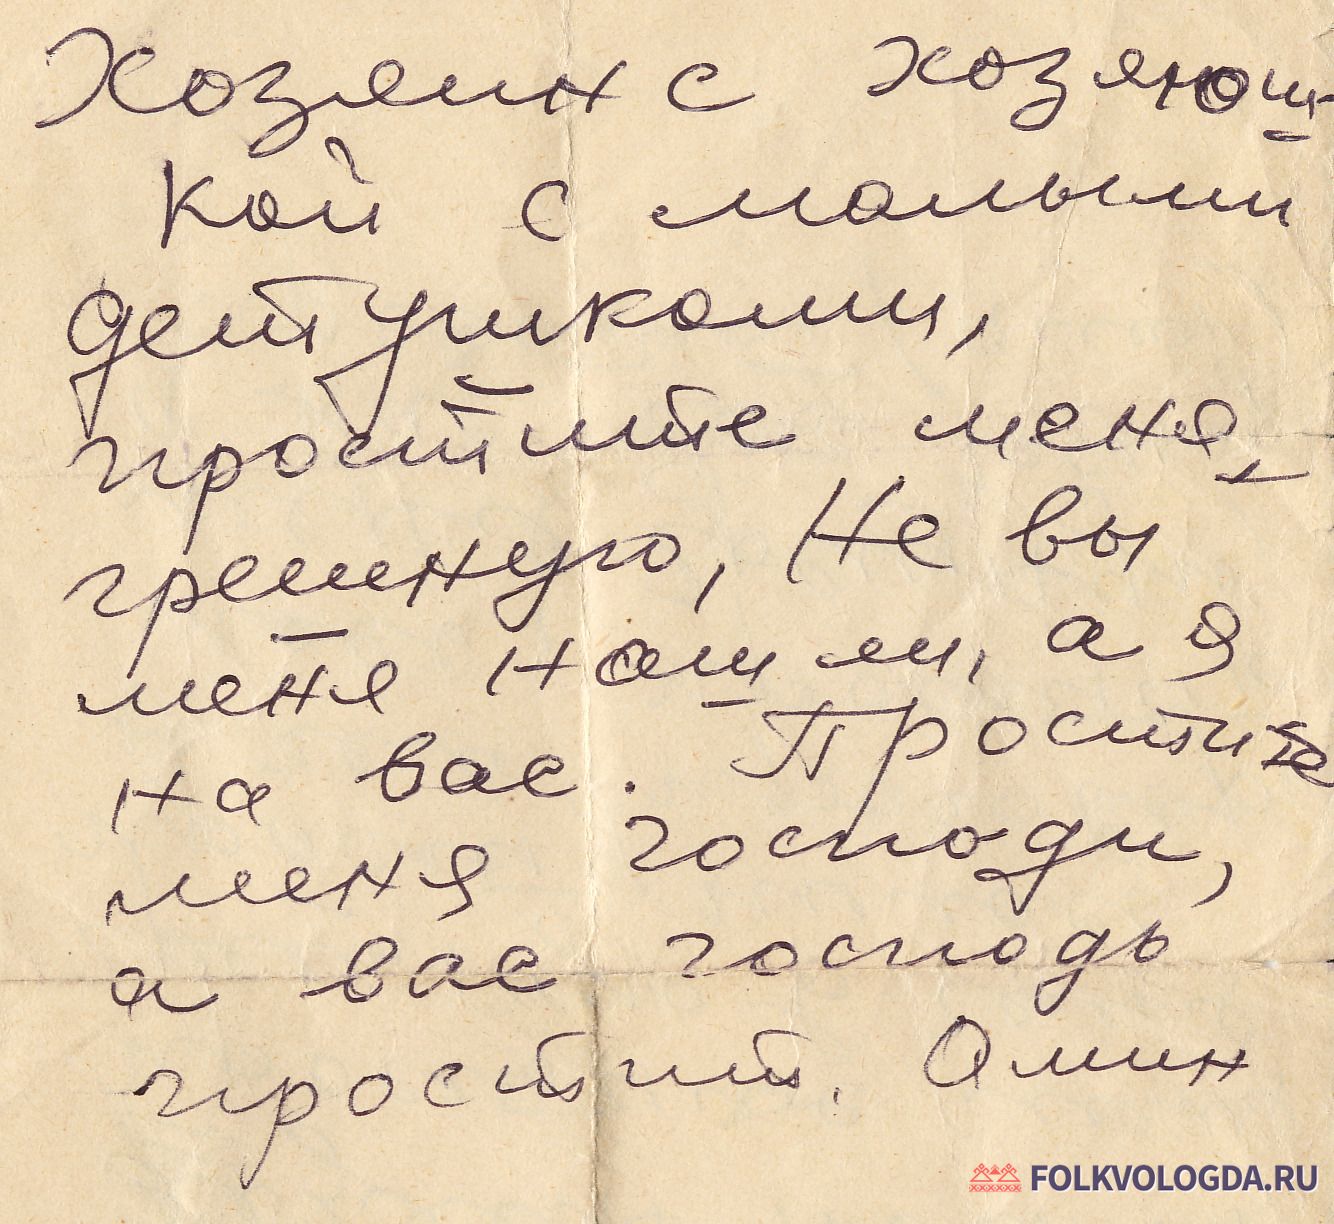 Хозяин с хозяюш-
кой с малыми
детушками,
простите меня,
грешную, Не вы
меня нашли, а я
на вас. Простите
меня господи,
а вас господь
простит. Омин
FOLKVOLOGDA.RU